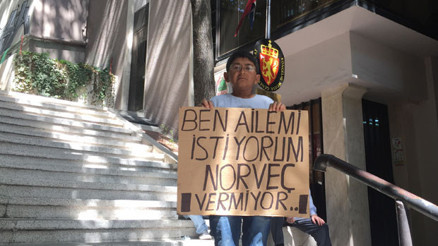 BEN AİLEMİ
İSTİYORUM
NORVEÇ
!VERMİYOR..!